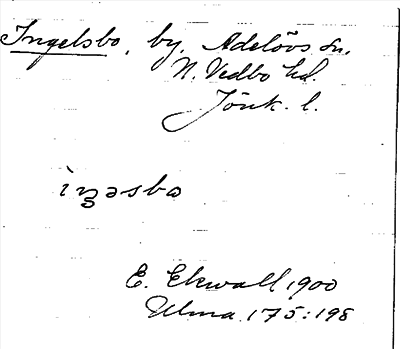 Ingelsbo, by, Adelövs sn.
N. Vedbo hd.
Jönk. l.
E. Ekwall 1900
Ulma 175:198